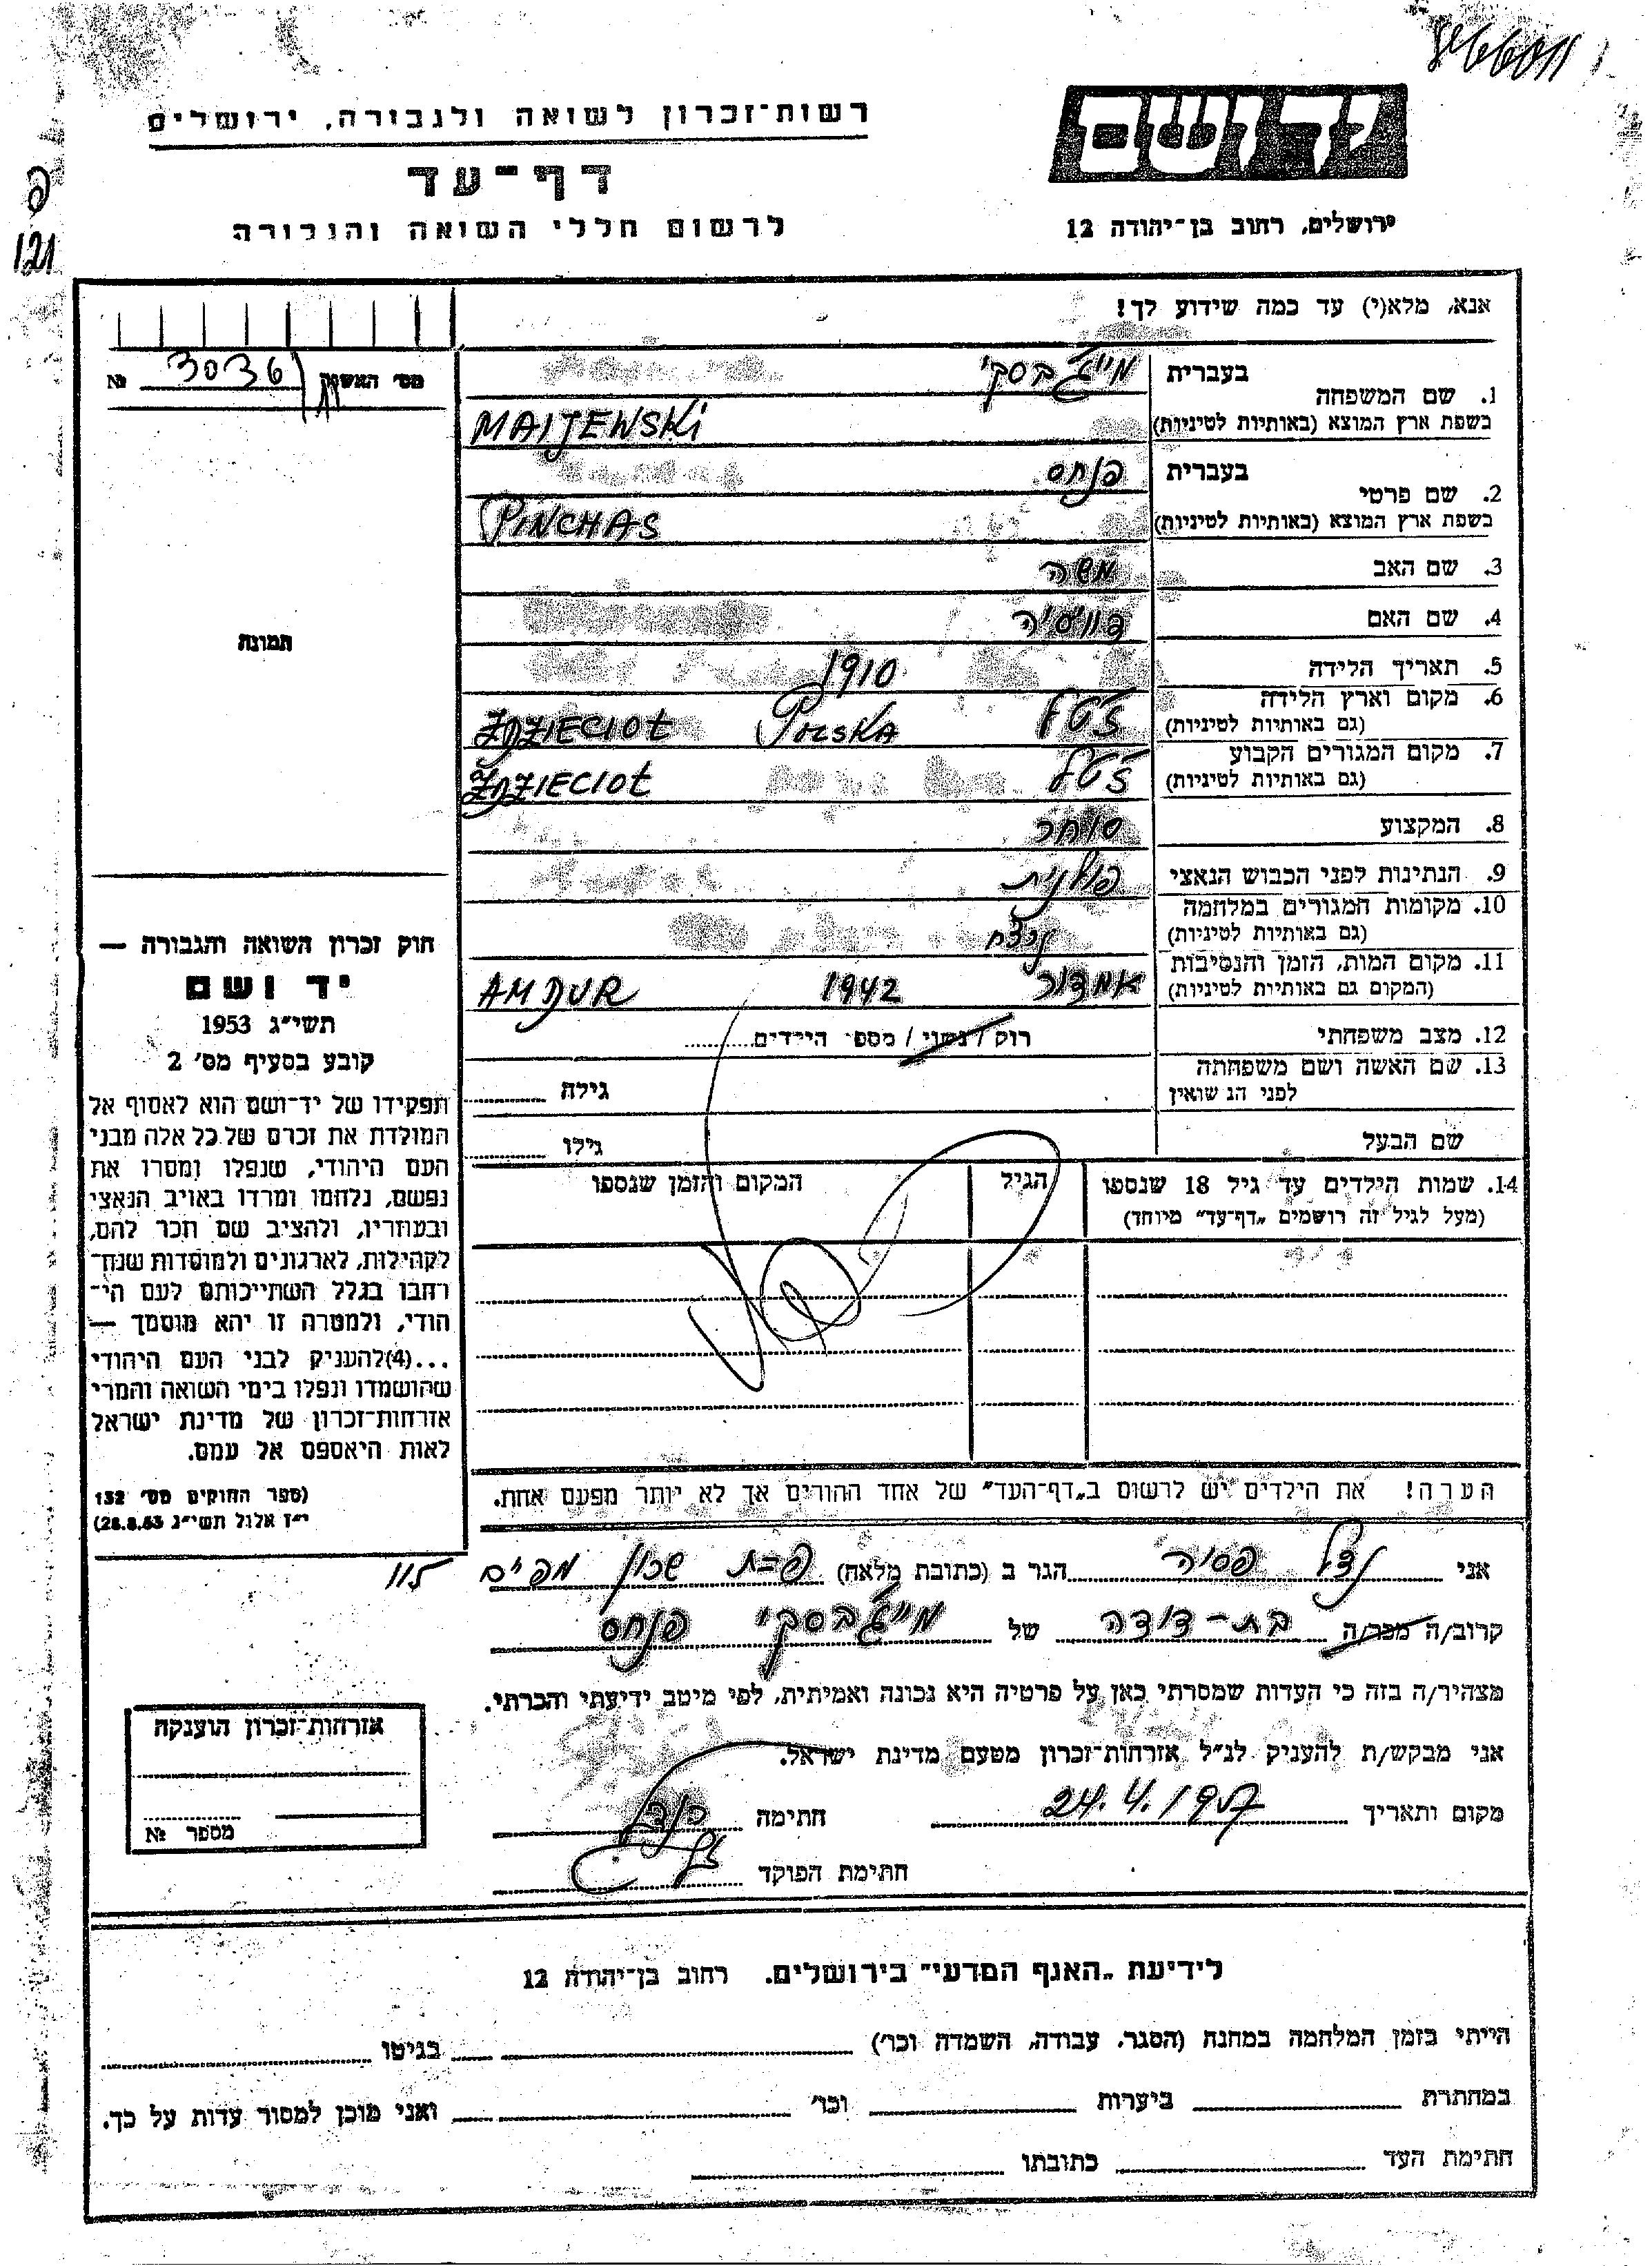 רשות־זכרון לשואה ולגבורה, ירושלים
דף־עד
לרשום חללי השואה והגבורה
יד ושם
ירושלים, רחוב בן־יהודה 12
121
אנא, מלא(י) עד כמה שידוע לך!
№ 3036
1. שם המשפחה בעברית מייז'בסקי
בשפת ארץ המוצא (באותיות לטיניות) MAIJEWSKi
2. שם פרטי בעברית פנחס
בשפת ארץ המוצא (באותיות לטיניות) PINCHAS
3. שם האב משה
4. שם האם
5. תאריך הלידה 1910
6. מקום וארץ הלידה
(גם באותיות לטיניות) ז'טל POLSKA ŻDZIECIOŁ
7. מקום המגורים הקבוע
(גם באותיות לטיניות) ז'טל ŻDZIECIOŁ
8. המקצוע סוחר
9. הנתינות לפני הכבוש הנאצי פולנית
10. מקומות המגורים במלחמה
(גם באותיות לטיניות)
11. מקום המות, הזמן והנסיבות
(המקום גם באותיות לטיניות) אמדור 1942 AMDUR
12. מצב משפחתי רוק / נשוי / מספ׳ הילדים
13. שם האשה ושם משפחתה
לפני הנשואין גילה
שם הבעל גילו
14. שמות הילדים עד גיל 18 שנספו
(מעל לגיל זה רושמים „דף־עד״ מיוחד)
הגיל
המקום והזמן שנספו
תמונה
חוק זכרון השואה והגבורה —
יד ושם
תשי״ג 1953
קובע בסעיף מס׳ 2
תפקידו של יד־ושם הוא לאסוף אל
המולדת את זכרם של כל אלה מבני
העם היהודי, שנפלו ומסרו את
נפשם, נלחמו ומרדו באויב הנאצי
ובעוזריו, ולהציב שם וזכר להם,
לקהילות, לארגונים ולמוסדות שנח־
רחבו בגלל השתייכותם לעם הי־
הודי, ולמטרה זו יהא מוסמך —
...(4)להעניק לבני העם היהודי
שהושמדו ונפלו בימי השואה והמרי
אזרחות־זכרון של מדינת ישראל
לאות היאספם אל עמם.
(ספר החוקים מס׳ 132
י״ז אלול תשי״ג 28.8.53)
הערה! את הילדים יש לרשום ב„דף־העד״ של אחד ההורים אך לא יותר מפעם אחת.
אני נדל פסיה הגר ב (כתובת מלאה) פ=ת שכון מפ״ם 115
קרוב/ה מכר/ה בת-דודה של מייז'בסקי פנחס
מצהיר/ה בזה כי העדות שמסרתי כאן על פרטיה היא נכונה ואמיתית, לפי מיטב ידיעתי והכרתי.
אני מבקש/ת להעניק לנ״ל אזרחות־זכרון מטעם מדינת ישראל.
מקום ותאריך 24.4.1957 חתימה
חתימת הפוקד
אזרחות־זכרון הוענקה
מספר №
לידיעת „האגף המדעי״ בירושלים. רחוב בן־יהודה 12
הייתי בזמן המלחמה במחנה (הסגר, עבודה, השמדה וכו׳) בגיטו
במחתרת ביערות וכו׳ ואני מוכן למסור עדות על כך.
חתימת העד כתובתו